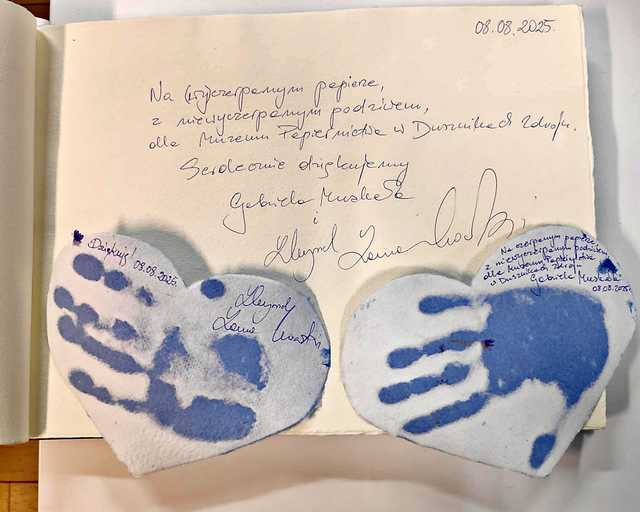 08.08.2025.
Na (wy)czerpanym papierze,
z niewyczerpanym podziwem,
dla Muzeum Papiernictwa w Dusznikach Zdroju.
Serdecznie dziękujemy
Gabriela Muskała
i
Krzysztof
Dziękuję! 08.08.2025.
Krzysztof
Na czerpanym papierze,
z niewyczerpanym podziwem
dla Muzeum Papiernictwa
w Dusznikach Zdroju
Gabriela Muskała
08.08.2025r.